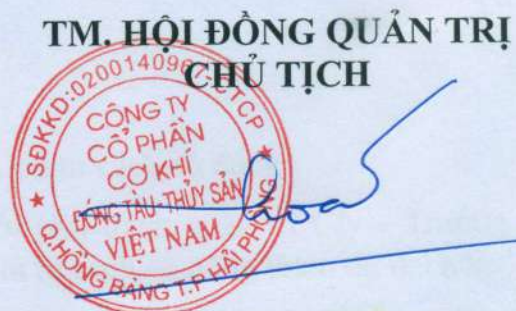 TM. HỘI ĐỒNG QUẢN TRỊ
CHỦ TỊCH
SĐKKD:0200140967-CTCP
CÔNG TY
CỔ PHẦN
CƠ KHÍ
ĐÓNG TÀU-THỦY SẢN
VIỆT NAM
Q.HỒNG BÀNG T.P HẢI PHÒNG